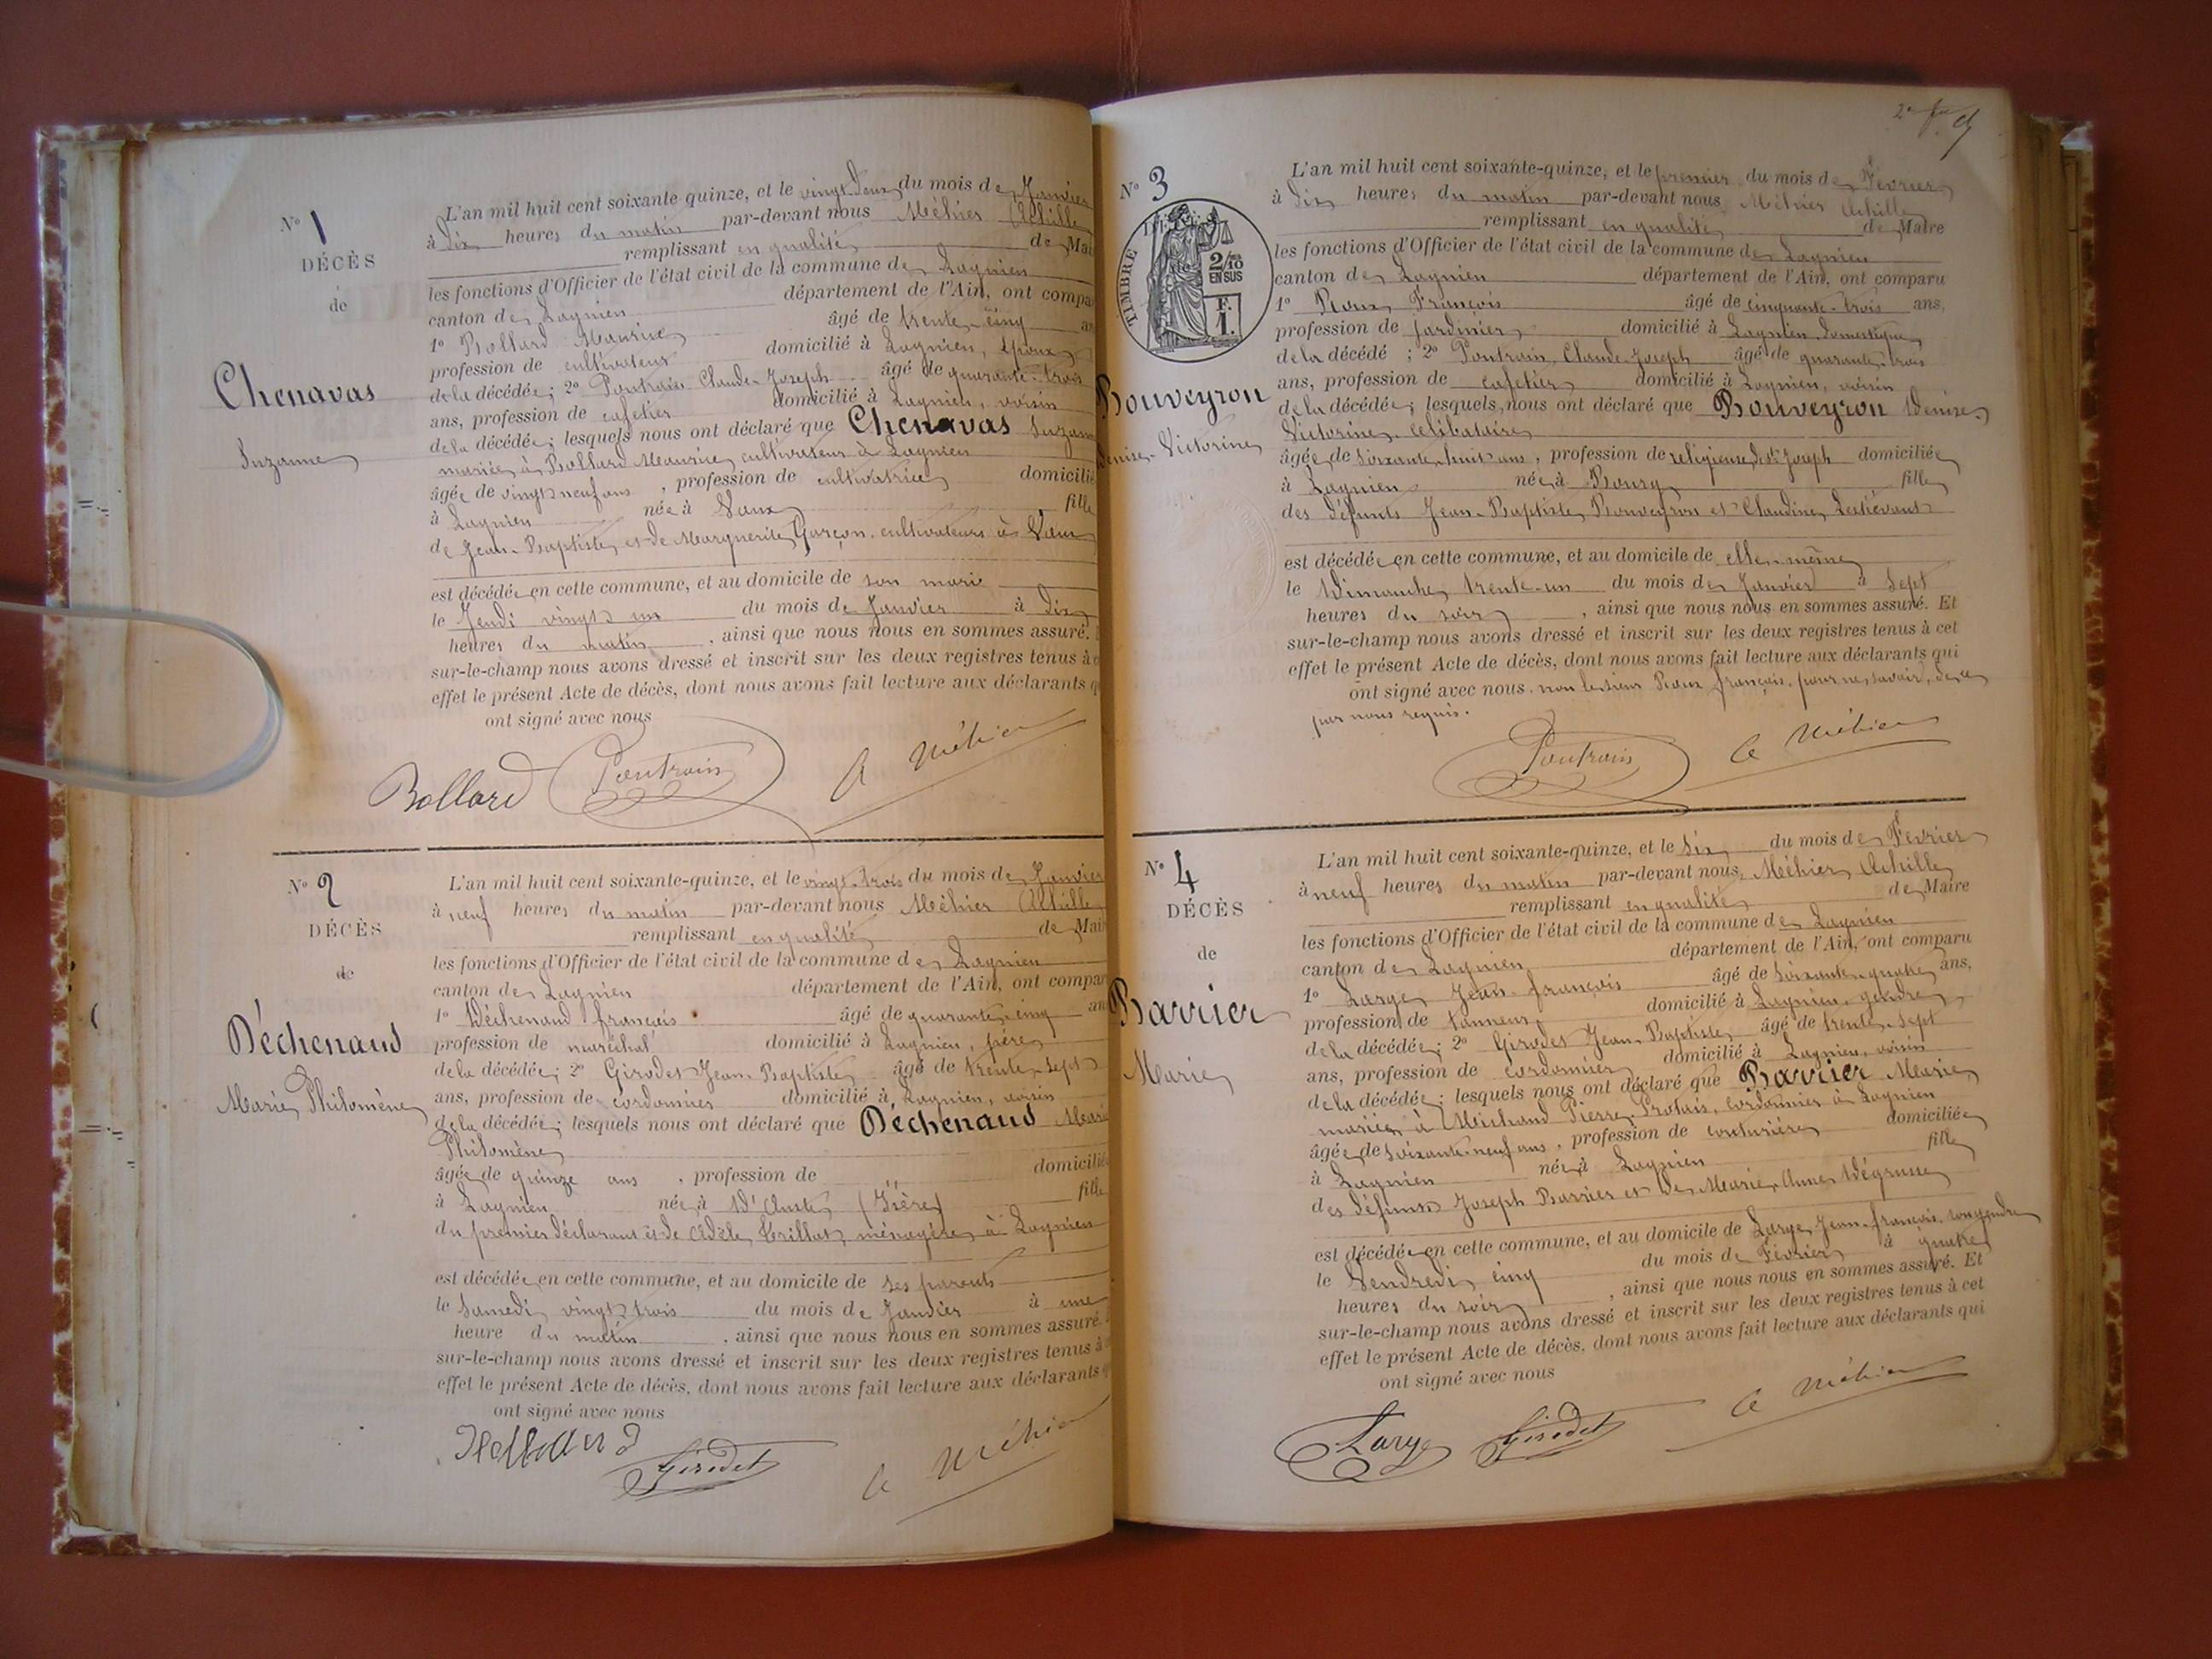 N° 1
DÉCÈS
de
Chenavas
Suzanne
L'an mil huit cent soixante-quinze, et le vingt-deux du mois de Janvier
à dix heures du matin par-devant nous Méhier Achille
remplissant en qualité de Mai
les fonctions d'Officier de l'état civil de la commune de Lagnieu
canton de Lagnieu département de l'Ain, ont compa
1° Bollard Maurice âgé de trente-cinq an
profession de cultivateur domicilié à Lagnieu, époux
de la décédée; 2° Poutrain Claude-Joseph âgé de quarante-trois
ans, profession de cafetier domicilié à Lagnieu, voisin
de la décédée; lesquels nous ont déclaré que Chenavas Suzan
mariée à Bollard Maurice cultivateur à Lagnieu
âgée de vingt neuf ans, profession de cultivatrice domicilié
à Lagnieu née à Vaux fille
de Jean-Baptiste et de Marguerite Garçon, cultivateurs à Vaux
est décédée en cette commune, et au domicile de son mari
le Jeudi vingt un du mois de Janvier à dix
heures du matin, ainsi que nous nous en sommes assuré.
sur-le-champ nous avons dressé et inscrit sur les deux registres tenus à
effet le présent Acte de décès, dont nous avons fait lecture aux déclarants q
ont signé avec nous
Bollard Poutrain A Méhier
N° 2
DÉCÈS
de
Déchenaud
Marie Philomène
L'an mil huit cent soixante-quinze, et le vingt-trois du mois de Janvier
à neuf heures du matin par-devant nous Méhier Achille
remplissant en qualité de Mai
les fonctions d'Officier de l'état civil de la commune de Lagnieu
canton de Lagnieu département de l'Ain, ont compar
1° Déchenaud françois âgé de quarante-cinq an
profession de maréchal domicilié à Lagnieu, père
de la décédée; 2° Girodet Jean-Baptiste âgé de trente-sept
ans, profession de cordonnier domicilié à Lagnieu, voisin
de la décédée; lesquels nous ont déclaré que Déchenaud Marie
Philomène
âgée de quinze ans, profession de domicilié
à Lagnieu née à D'Auste (Isère) fille
du premier déclarant et de Adèle Trillat, ménagère à Lagnieu
est décédée en cette commune, et au domicile de ses parents
le Samedi vingt trois du mois de Janvier à une
heure du matin, ainsi que nous nous en sommes assuré.
sur-le-champ nous avons dressé et inscrit sur les deux registres tenus à
effet le présent Acte de décès, dont nous avons fait lecture aux déclarants
ont signé avec nous
Girodet A Méhier
N° 3
TIMBRE
2/10
EN SUS
F.
1.
Bouveyron
Denise-Victorine
L'an mil huit cent soixante-quinze, et le premier du mois de Février
à dix heures du matin par-devant nous Méhier Achille
remplissant en qualité de Maire
les fonctions d'Officier de l'état civil de la commune de Lagnieu
canton de Lagnieu département de l'Ain, ont comparu
1° Roux François âgé de cinquante-trois ans,
profession de jardinier domicilié à Lagnieu, domestique
de la décédé; 2° Poutrain Claude-Joseph âgé de quarante-trois
ans, profession de cafetier domicilié à Lagnieu, voisin
de la décédée; lesquels nous ont déclaré que Bouveyron Denise
Victorine célibataire
âgée de soixante-huit ans, profession de religieuse de St Joseph domiciliée
à Lagnieu née à Bourg fille
des défunts Jean-Baptiste Bouveyron et Claudine
est décédée en cette commune, et au domicile de elle-même
le Dimanche trente-un du mois de Janvier à sept
heures du soir, ainsi que nous nous en sommes assuré. Et
sur-le-champ nous avons dressé et inscrit sur les deux registres tenus à cet
effet le présent Acte de décès, dont nous avons fait lecture aux déclarants qui
ont signé avec nous, non le sieur Roux françois, pour ne savoir, de ce
par nous requis.
Poutrain A Méhier
N° 4
DÉCÈS
de
Barrier
Marie
L'an mil huit cent soixante-quinze, et le six du mois de Février
à neuf heures du matin par-devant nous, Méhier Achille
remplissant en qualité de Maire
les fonctions d'Officier de l'état civil de la commune de Lagnieu
canton de Lagnieu département de l'Ain, ont comparu
1° Large Jean-françois âgé de soixante-quatre ans,
profession de tanneur domicilié à Lagnieu, gendre
de la décédée; 2° Girodet Jean-Baptiste âgé de trente-sept
ans, profession de cordonnier domicilié à Lagnieu, voisin
de la décédée; lesquels nous ont déclaré que Barrier Marie
mariée à Michaud Pierre-Protais, cordonnier à Lagnieu
âgée de soixante-neuf ans, profession de couturière domiciliée
à Lagnieu née à Lagnieu fille
des défunts Joseph Barrier et De Marie-Anne Dégrusse
est décédée en cette commune, et au domicile de Large Jean-françois, son gendre
le Vendredi cinq du mois de Février à quatre
heures du soir, ainsi que nous nous en sommes assuré. Et
sur-le-champ nous avons dressé et inscrit sur les deux registres tenus à cet
effet le présent Acte de décès, dont nous avons fait lecture aux déclarants qui
ont signé avec nous
Large Girodet A Méhier